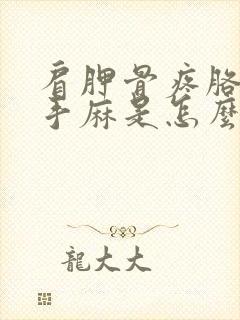 肩胛骨疼胳
手麻是怎麼
龍大大